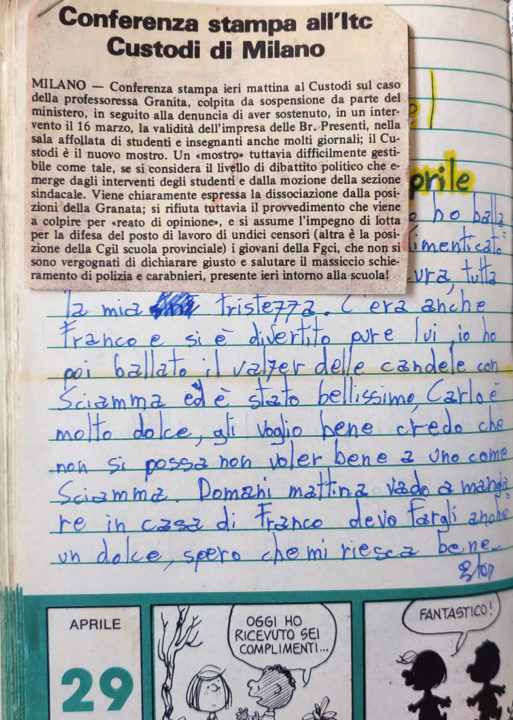 Conferenza stampa all'Itc
Custodi di Milano
MILANO — Conferenza stampa ieri mattina al Custodi sul caso
della professoressa Granita, colpita da sospensione da parte del
ministero, in seguito alla denuncia di aver sostenuto, in un inter-
vento il 16 marzo, la validità dell'impresa delle Br. Presenti, nella
sala affollata di studenti e insegnanti anche molti giornali; il Cu-
stodi è il nuovo mostro. Un «mostro» tuttavia difficilmente gesti-
bile come tale, se si considera il livello di dibattito politico che e-
merge dagli interventi degli studenti e dalla mozione della sezione
sindacale. Viene chiaramente espressa la dissociazione dalla posi-
zioni della Granata; si rifiuta tuttavia il provvedimento che viene
a colpire per «reato di opinione», e si assume l'impegno di lotta
per la difesa del posto di lavoro di undici censori (altra è la posi-
zione della Cgil scuola provinciale) i giovani della Fgci, che non si
sono vergognati di dichiarare giusto e salutare il massiccio schie-
ramento di polizia e carabinieri, presente ieri intorno alla scuola!
prile
ho balla
imenticato
ura, tutta
la mia tristezza. C'era anche
Franco e si è divertito pure lui, io ho
poi ballato il valzer delle candele con
Sciamma ed è stato bellissimo, Carlo è
molto dolce, gli voglio bene credo che
non si possa non voler bene a uno come
Sciamma. Domani mattina vado a mangia
re in casa di Franco devo fargli anche
un dolce, spero che mi riesca bene-
APRILE
29
OGGI HO
RICEVUTO SEI
COMPLIMENTI...
FANTASTICO!